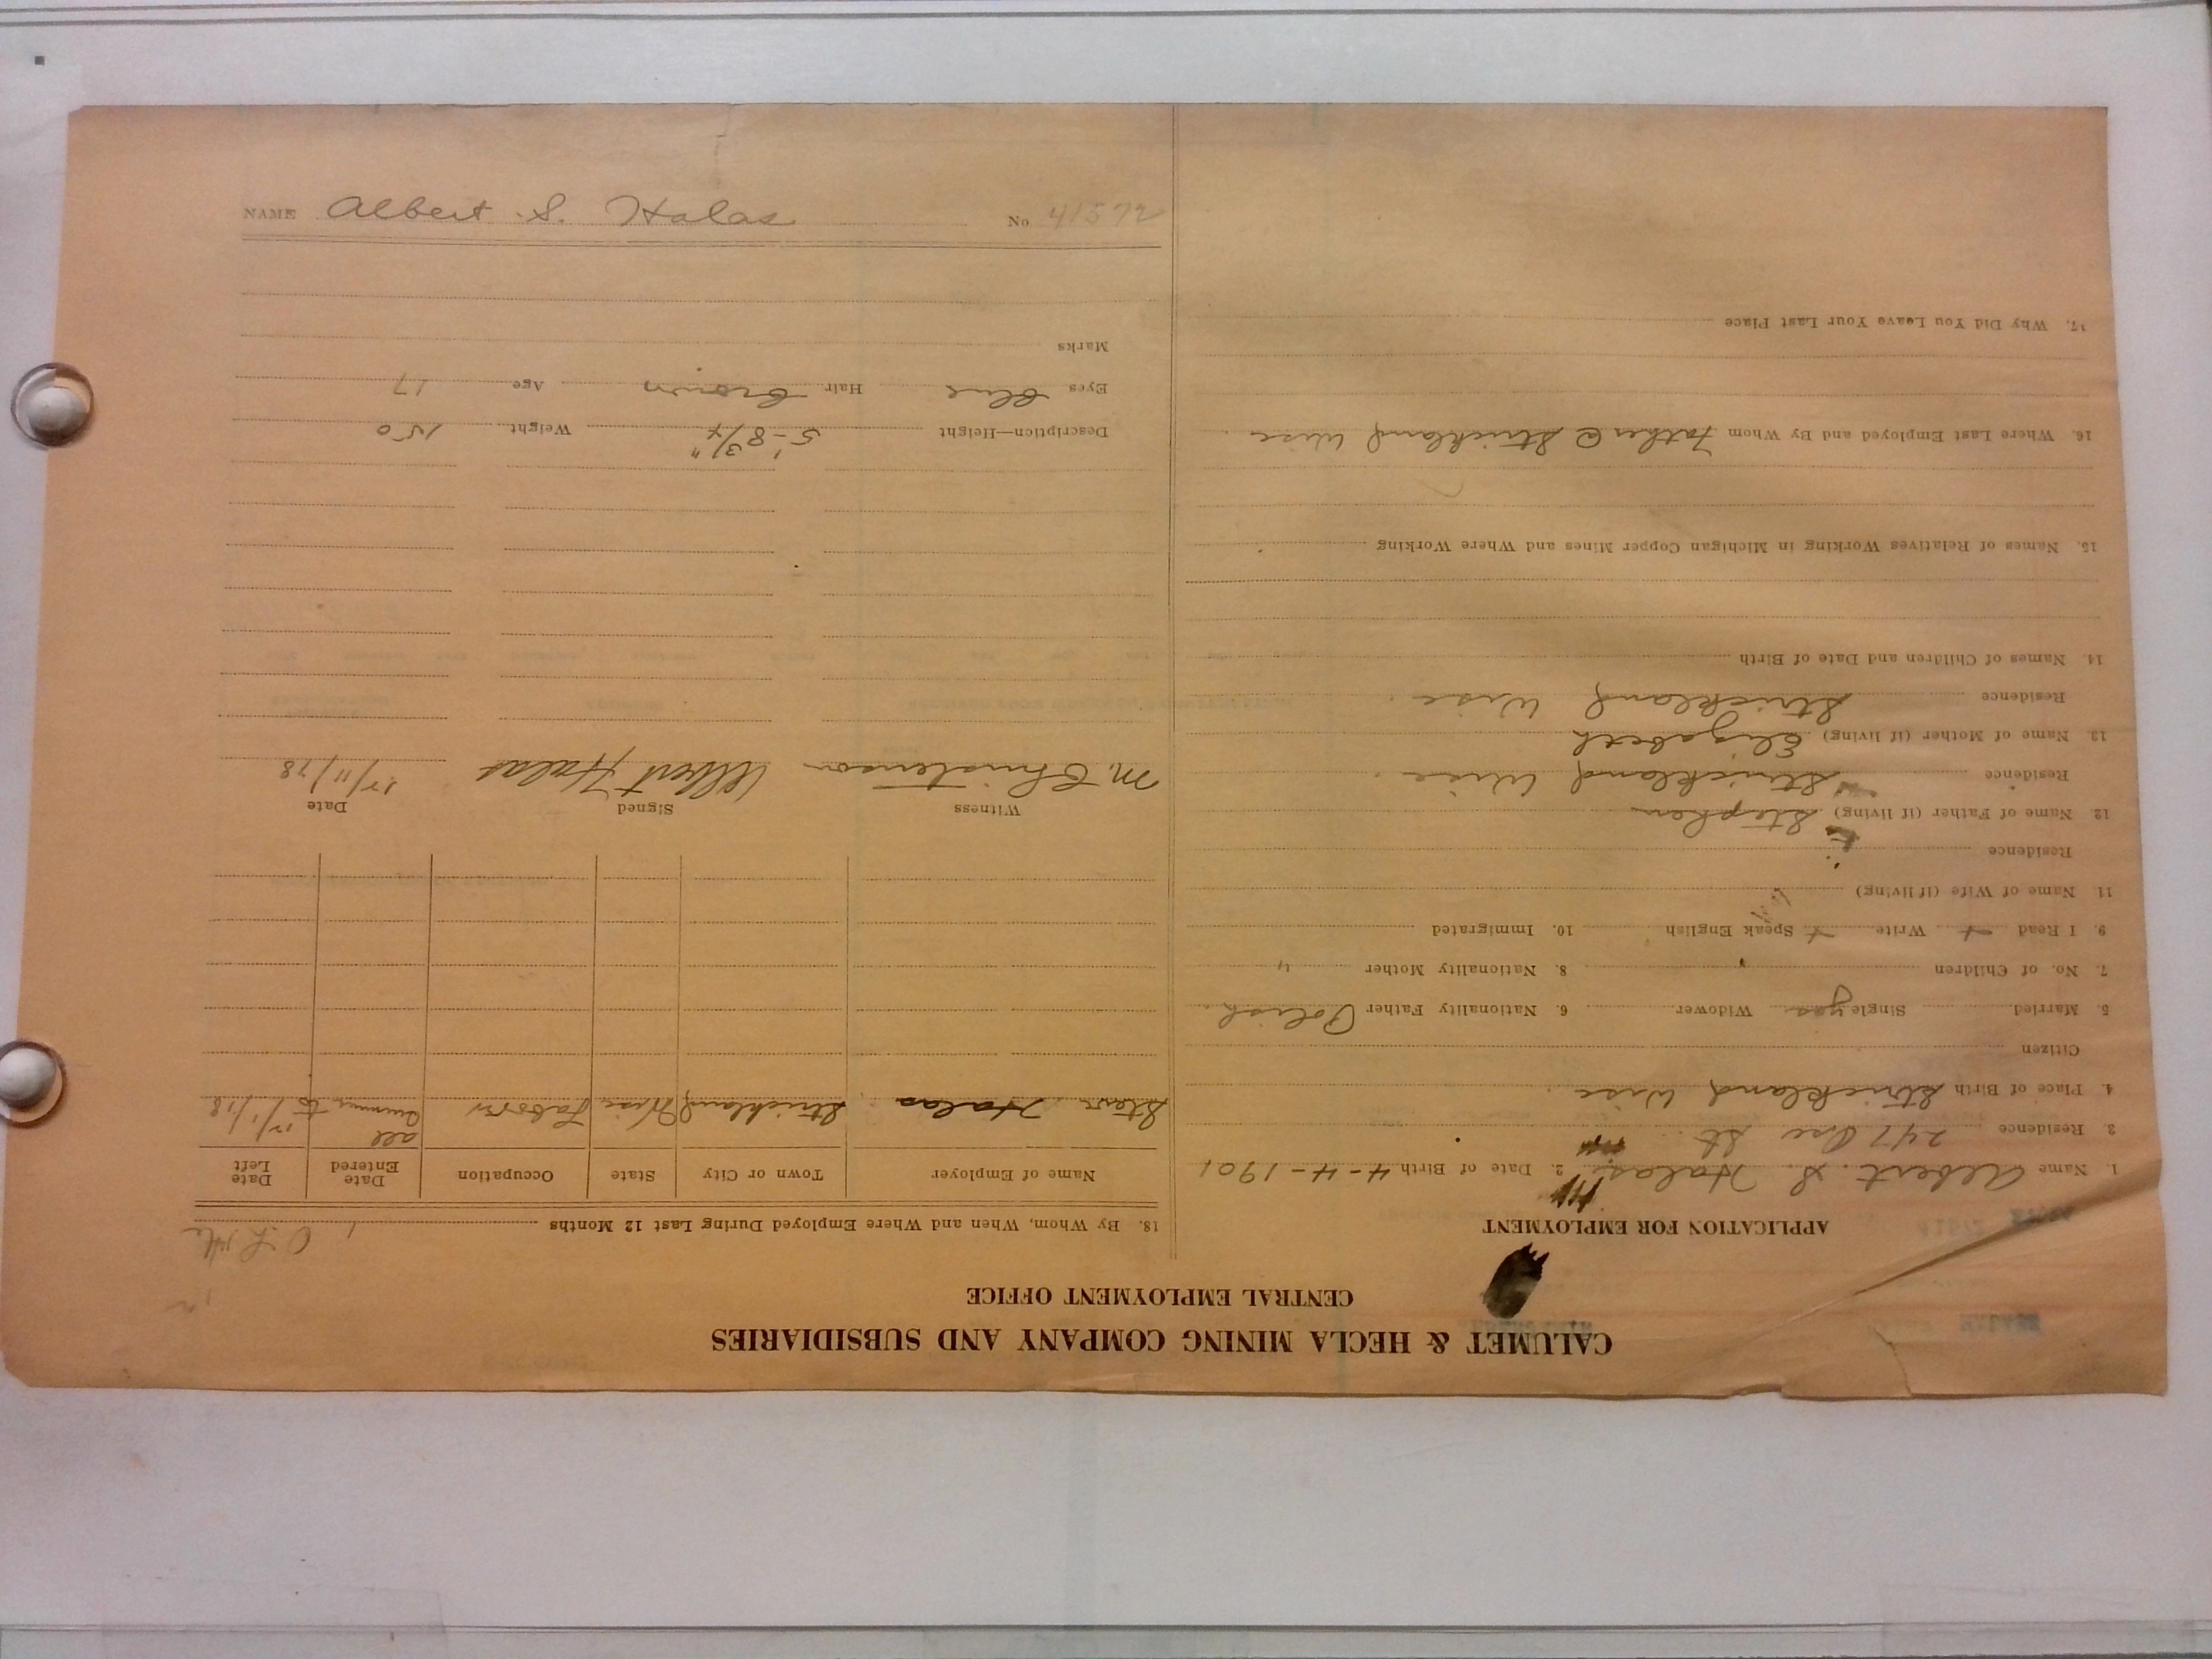 CALUMET & HECLA MINING COMPANY AND SUBSIDIARIES
CENTRAL EMPLOYMENT OFFICE
APPLICATION FOR EMPLOYMENT
1. Name Albert. S. Halas 2. Date of Birth 4-4-1901
3. Residence 247 St.
4. Place of Birth Strickland Wisc.
Citizen
5. Married Single yes Widower 6. Nationality Father Polish
7. No. of Children 8. Nationality Mother "
9. I Read + Write + Speak English 10. Immigrated
11. Name of Wife (if living)
Residence
12. Name of Father (if living) Stephen
Residence Strickland Wisc.
13. Name of Mother (if living) Elizabeth
Residence Strickland Wisc.
14. Names of Children and Date of Birth
15. Names of Relatives Working in Michigan Copper Mines and Where Working
16. Where Last Employed and By Whom Father @ Strickland Wisc.
17. Why Did You Leave Your Last Place
18. By Whom, When and Where Employed During Last 12 Months
Name of Employer Town or City State Occupation Date Entered Date Left
Halas Strickland Wisc Labor all summer to 12/1/18
Witness Signed Date
M. Christenson Albert Halas 12/11/18
Description—Height 5'-8 3/4" Weight 150
Eyes blue Hair brown Age 17
Marks
NAME Albert S. Halas No 41572